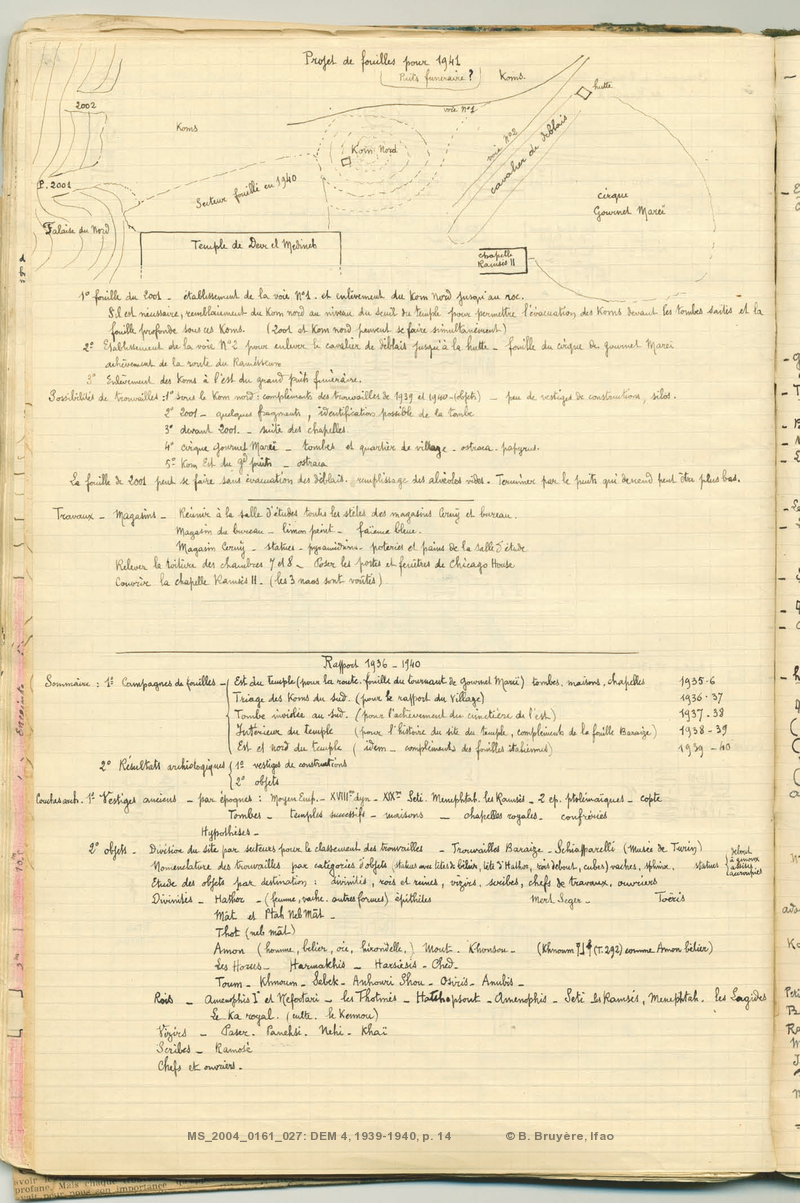 Projet de fouilles pour 1941
Puits funéraire ?
Koms.
hutte
2002
Koms
voie N°1
voie N°2
cavalier de déblais
Kom Nord
P. 2001
Secteur fouillé en 1940
cirque
Gournet Mareï
Falaise du Nord
Temple de Deir el Medineh
chapelle
Ramsès II
1° fouille du 2001 - établissement de la voie N°1. et enlèvement du Kom Nord jusqu'au roc.
S'il est nécessaire, remblaiement du Kom nord au niveau du seuil du temple pour permettre l'évacuation des Koms devant les tombes saïtes et la
fouille profonde sous ces Koms. (2001 et Kom nord peuvent se faire simultanément)
2° Etablissement de la voie N°2 pour enlever le cavalier de déblais jusqu'à la hutte - fouille du cirque du Gournet Mareï
achèvement de la route du Ramesseum
3° Enlèvement des Koms à l'est du grand puits funéraire.
Possibilités de trouvailles : 1° sous le Kom nord : compléments des trouvailles de 1939 et 1940 - (objets) - peu de vestiges de constructions, silos.
2° 2001 - quelques fragments, identification possible de la tombe
3° devant 2001. - suite des chapelles.
4° cirque Gournet Mareï - tombes et quartier de village - ostraca - papyrus.
5° Kom Est du gd puits - ostraca
La fouille de 2001 peut se faire sans évacuation des déblais. remplissage des alvéoles vides. Terminer par le puits qui descend peut être plus bas.
Travaux - Magasins - Réunir à la salle d'études toutes les stèles des magasins Cerny et bureau.
Magasin du bureau - limon peint - faïence bleue.
Magasin Cerny - statues - pyramidions - poteries et pains de la salle d'étude
Relever la toiture des chambres 7 et 8 - Poser les portes et fenêtres de Chicago House
Couvrir la chapelle Ramsès II - (les 3 naos sont voûtés)
Rapport 1936 - 1940
Sommaire : 1° Campagnes de fouilles - Est du temple (pour la route. fouille du tournant de Gournet Mareï) tombes. maisons, chapelles 1935-6
Triage des Koms du sud. (pour le rapport du Village) 1936-37
Tombe inviolée au sud. (pour l'achèvement du cimetière de l'est) 1937-38
Intérieur du temple (pour l'histoire du site du temple, complément de la fouille Baraize) 1938-39
Est et nord du temple (idem - complément des fouilles italiennes) 1939-40
2° Résultats archéologiques 1° vestiges de constructions
2° objets
1° Vestiges anciens - par époques : Moyen Emp. - XVIIIe dyn - XIXe Seti. Menephtah. les Ramsès - 2 ep. ptolémaïques - copte
Tombes - temples successifs - maisons - chapelles royales - confréries
Hypothèses -
2° objets - Division du site par secteurs pour le classement des trouvailles - Trouvailles Baraize - Schiaparelli (Musée de Turin)
Nomenclature des trouvailles par catégories d'objets (statues avec têtes de bélier, tête d'Hathor, rois debout, cubes) vaches, sphinx, statues debout
à genoux
assises
accroupies
Etude des objets par destination : divinités, rois et reines, vizirs, scribes, chefs de travaux, ouvriers
Divinités - Hathor - (femme, vache. autres formes) épithètes Mert Seger - Toëris
Mât et Ptah Neb Mât -
Thot (neb mât)
Amon (homme, bélier, oie, hirondelle.) Mout - Khonsou - (Khnoum (T. 292) comme Amon bélier)
Les Horus - Harmakhis - Harsiesis - Ched -
Toum - Khnoum - Sebek - Anhouri Shou - Osiris - Anubis -
Rois - Amenophis Ier et Nefertari - les Thotmès - Hatshepsout - Amenophis - Seti les Ramsès, Menephtah. les Lagides
Le Ka royal. (culte. le Kennou)
Vizirs - Paser - Panehsi - Nehi - Khaï
Scribes - Ramosé
Chefs et ouvriers -
MS_2004_0161_027: DEM 4, 1939-1940, p. 14 © B. Bruyère, Ifao